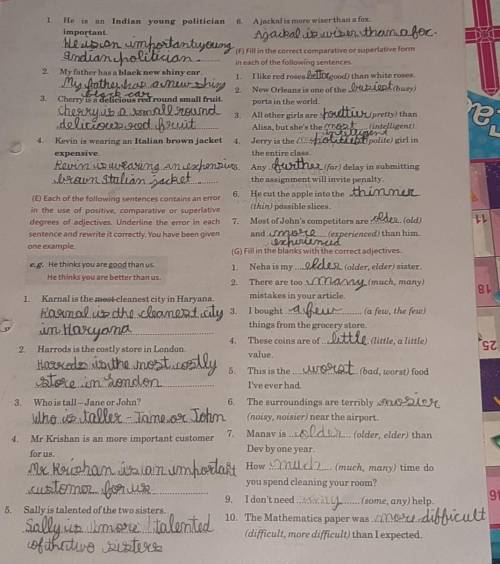 1. He is an Indian young politician
important.
He is an important young
Indian politician.
2. My father has a black new shiny car.
My father has a new shiny
black car
3. Cherry is a delicious red round small fruit.
Cherry is a small round
delicious red fruit.
4. Kevin is wearing an Italian brown jacket
expensive.
Kevin is wearing an expensive
brown Italian jacket
(E) Each of the following sentences contains an error
in the use of positive, comparative or superlative
degrees of adjectives. Underline the error in each
sentence and rewrite it correctly. You have been given
one example.
e.g. He thinks you are good than us.
He thinks you are better than us.
1. Karnal is the most cleanest city in Haryana.
Karnal is the cleanest city
in Haryana
2. Harrods is the costly store in London.
Harrods is the most costly
store in London
3. Who is tall – Jane or John?
Who is taller - Jane or John
4. Mr Krishan is an more important customer
for us.
Mr. Krishan is an important
customer for us
5. Sally is talented of the two sisters.
Sally is more talented
of the two sisters
6. A jackal is more wiser than a fox.
A jackal is wiser than a fox.
(F) Fill in the correct comparative or superlative form
in each of the following sentences.
1. I like red roses better (good) than white roses.
2. New Orleans is one of the busiest (busy)
ports in the world.
3. All other girls are prettier (pretty) than
Alisa, but she's the most (intelligent).
intelligent
4. Jerry is the politest (polite) girl in
the entire class.
5. Any further (far) delay in submitting
the assignment will invite penalty.
6. He cut the apple into the thinner
(thin) possible slices.
7. Most of John's competitors are older (old)
and more (experienced) than him.
experienced
(G) Fill in the blanks with the correct adjectives.
1. Neha is my elder (older, elder) sister.
2. There are too many (much, many)
mistakes in your article.
3. I bought a few (a few, the few)
things from the grocery store.
4. These coins are of little (little, a little)
value.
5. This is the worst (bad, worst) food
I've ever had.
6. The surroundings are terribly nosier
(noisy, noisier) near the airport.
7. Manav is older (older, elder) than
Dev by one year.
How much (much, many) time do
you spend cleaning your room?
9. I don't need (some, any) help.
10. The Mathematics paper was more difficult
(difficult, more difficult) than I expected.
11
18
25